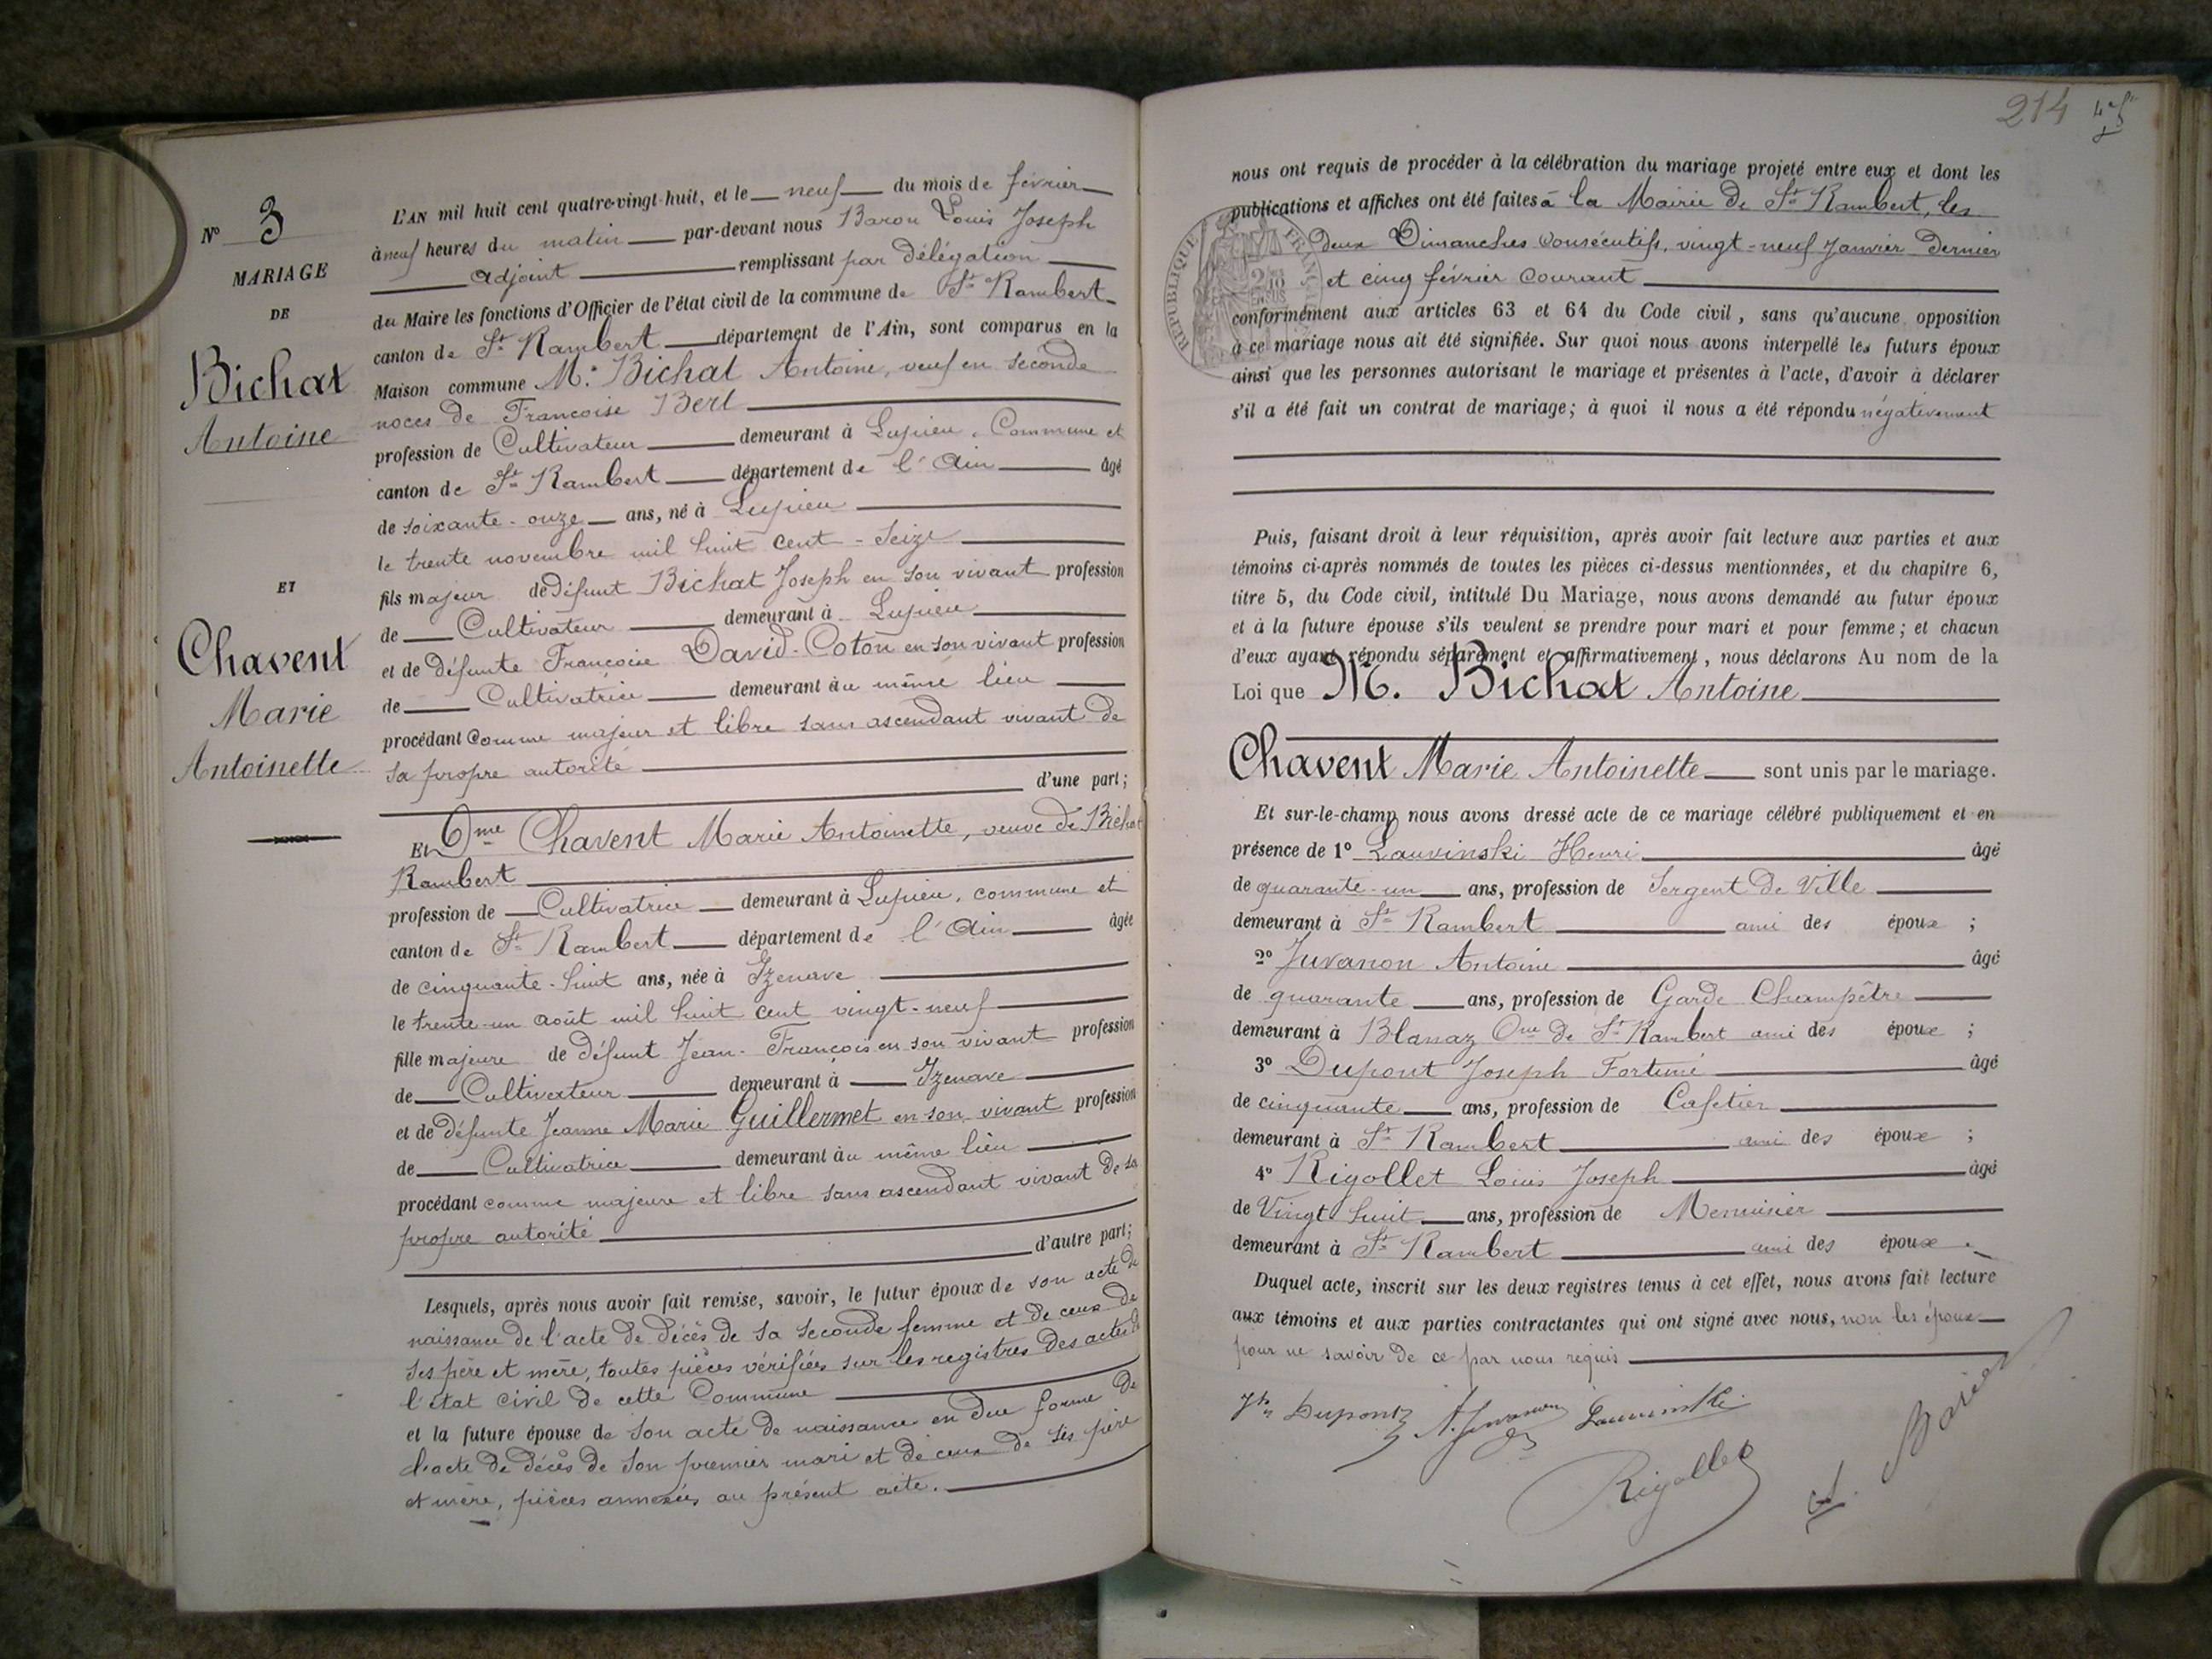 N° 3
MARIAGE
DE
Bichat
Antoine
ET
Chavent
Marie
Antoinette
L'AN mil huit cent quatre-vingt-huit, et le neuf du mois de février
à neuf heures du matin par-devant nous Baron Louis Joseph
adjoint remplissant par délégation
du Maire les fonctions d'Officier de l'état civil de la commune de St Rambert
canton de St Rambert département de l'Ain, sont comparus en la
Maison commune M. Bichat Antoine, veuf en seconde
noces de Françoise Berl
profession de Cultivateur demeurant à Lupieu, Commune et
canton de St Rambert département de l'Ain âgé
de soixante-onze ans, né à Lupieu
le trente novembre mil huit cent-seize
fils majeur de défunt Bichat Joseph en son vivant profession
de Cultivateur demeurant à Lupieu
et de défunte Françoise David-Coton en son vivant profession
de Cultivatrice demeurant au même lieu
procédant comme majeur et libre sans ascendant vivant de
sa propre autorité
d'une part;
Et Dme Chavent Marie Antoinette, veuve de Bichat
Rambert
profession de Cultivatrice demeurant à Lupieu, commune et
canton de St Rambert département de l'Ain âgée
de cinquante-huit ans, née à Izenave
le trente-un août mil huit cent vingt-neuf
fille majeure de défunt Jean-François en son vivant profession
de Cultivateur demeurant à Izenave
et de défunte Jeanne Marie Guillermet en son vivant profession
de Cultivatrice demeurant au même lieu
procédant comme majeure et libre sans ascendant vivant de sa
propre autorité
d'autre part;
Lesquels, après nous avoir fait remise, savoir, le futur époux de son acte de
naissance de l'acte de décès de sa seconde femme et de ceux de
ses père et mère, toutes pièces vérifiées sur les registres des actes de
l'état civil de cette Commune
et la future épouse de son acte de naissance en due forme de
l'acte de décès de son premier mari et de ceux de ses père
et mère, pièces annexées au présent acte.
214
nous ont requis de procéder à la célébration du mariage projeté entre eux et dont les
publications et affiches ont été faites à la Mairie de St Rambert, les
deux Dimanches consécutifs, vingt-neuf janvier dernier
et cinq février courant
RÉPUBLIQUE FRANÇAISE
conformément aux articles 63 et 64 du Code civil, sans qu'aucune opposition
à ce mariage nous ait été signifiée. Sur quoi nous avons interpellé les futurs époux
ainsi que les personnes autorisant le mariage et présentes à l'acte, d'avoir à déclarer
s'il a été fait un contrat de mariage; à quoi il nous a été répondu négativement
Puis, faisant droit à leur réquisition, après avoir fait lecture aux parties et aux
témoins ci-après nommés de toutes les pièces ci-dessus mentionnées, et du chapitre 6,
titre 5, du Code civil, intitulé Du Mariage, nous avons demandé au futur époux
et à la future épouse s'ils veulent se prendre pour mari et pour femme; et chacun
d'eux ayant répondu séparément et affirmativement, nous déclarons Au nom de la
Loi que M. Bichat Antoine
Chavent Marie Antoinette sont unis par le mariage.
Et sur-le-champ nous avons dressé acte de ce mariage célébré publiquement et en
présence de 1° Lauvinski Henri âgé
de quarante-un ans, profession de Sergent de Ville
demeurant à St Rambert ami des époux;
2° Juvanon Antoine âgé
de quarante ans, profession de Garde Champêtre
demeurant à Blanaz Cne de St Rambert ami des époux;
3° Dupont Joseph Fortuné âgé
de cinquante ans, profession de Cafetier
demeurant à St Rambert ami des époux;
4° Rigollet Louis Joseph âgé
de Vingt huit ans, profession de Menuisier
demeurant à St Rambert ami des époux.
Duquel acte, inscrit sur les deux registres tenus à cet effet, nous avons fait lecture
aux témoins et aux parties contractantes qui ont signé avec nous, non les époux
pour ne savoir de ce par nous requis
Jh Dupont A. Juvanon Lauvinski
Rigollet L. Baron